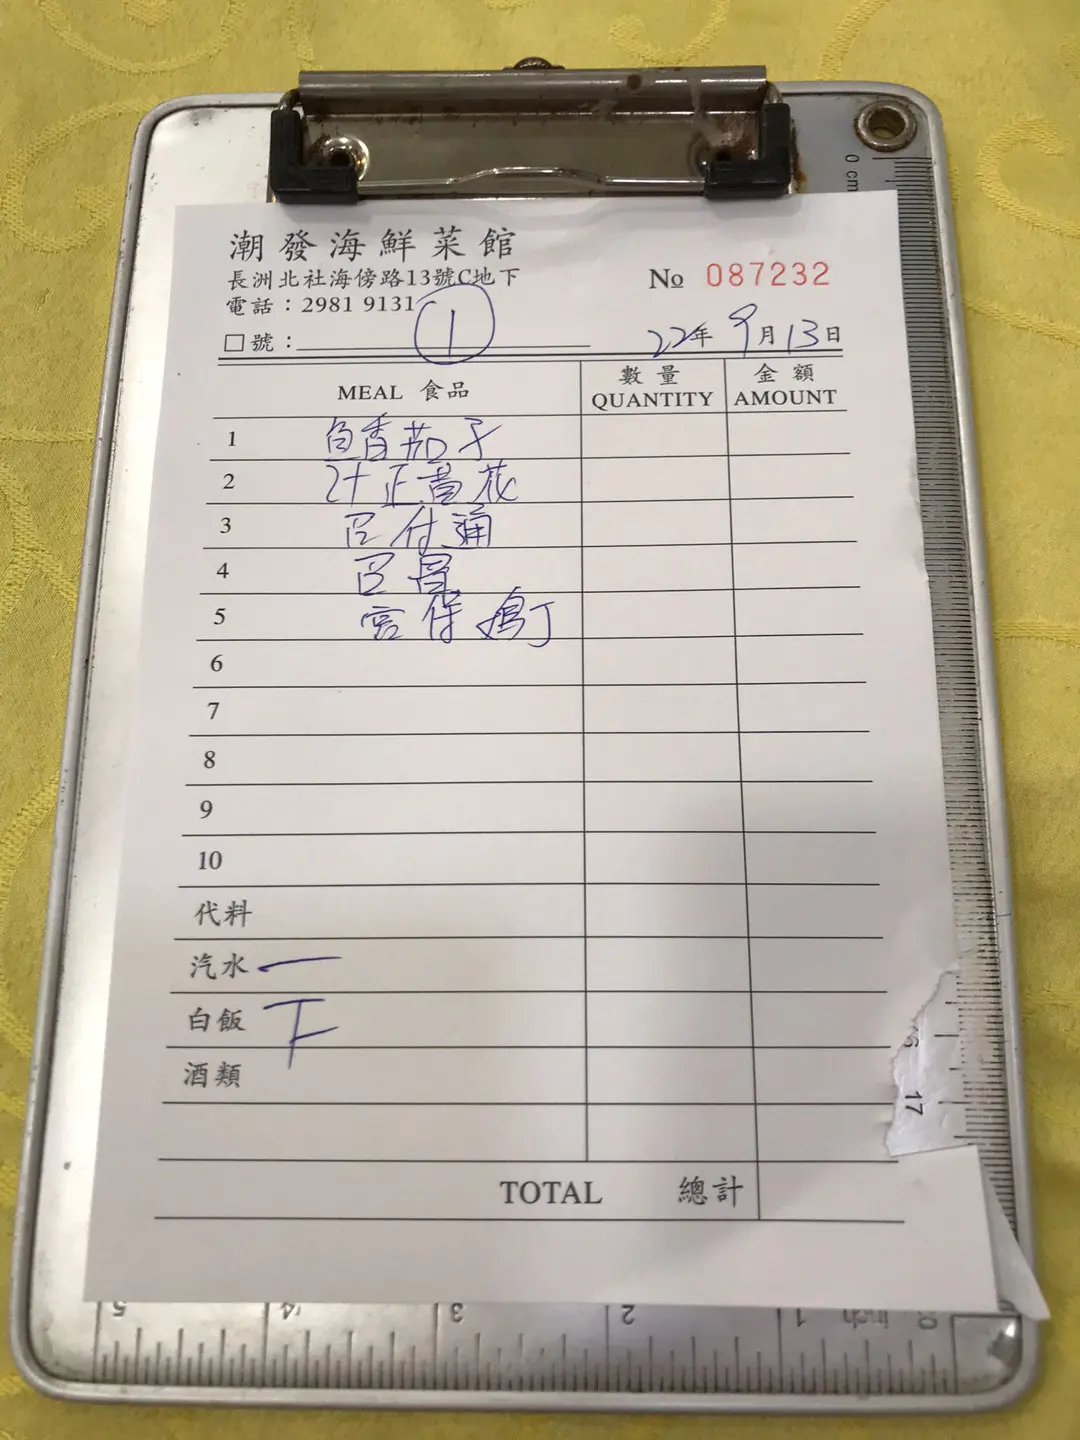 潮發海鮮菜館
長洲北社海傍路13號C地下
電話：2981 9131
No 087232
□號： 1
22年 9月 13日
MEAL 食品 數量 QUANTITY 金額 AMOUNT
1 魚香茄子
2 汁正黃花
3 巴付通
4 巴骨
5 宮保鷄丁
6
7
8
9
10
代料
汽水 一
白飯
酒類
TOTAL 總計
0 cm
16
17
5 4 3 2 1 inch 0